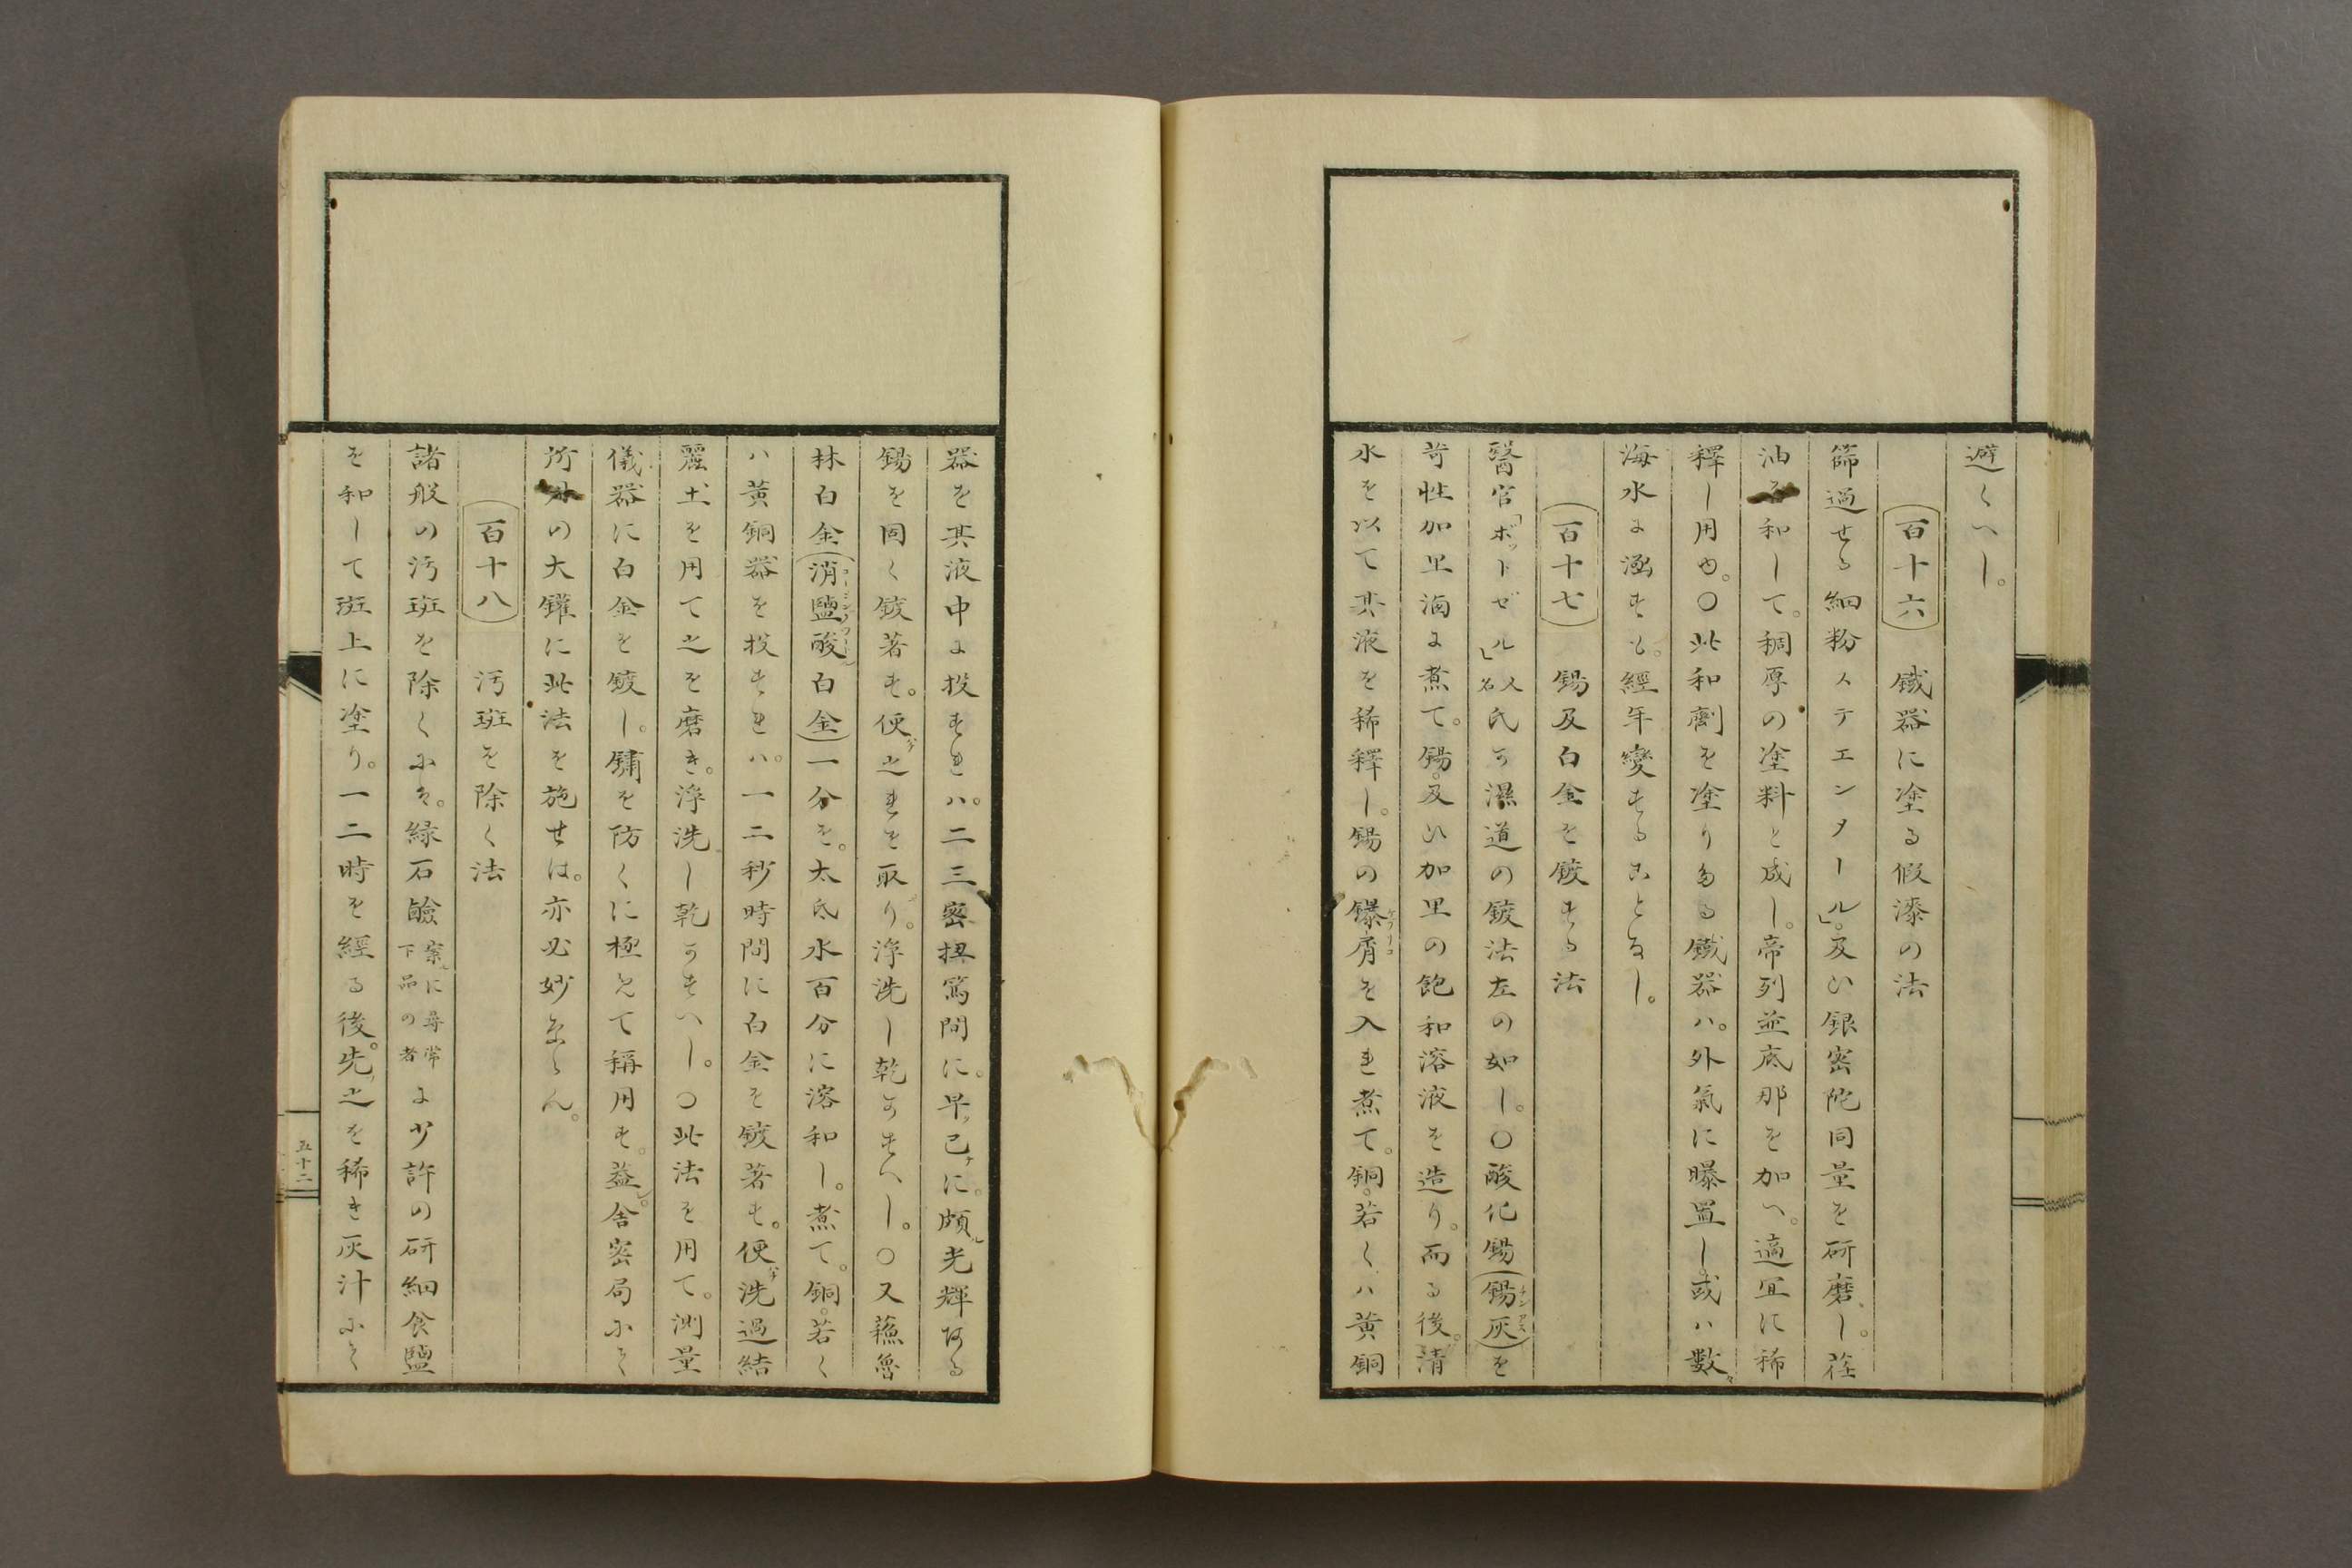 避くへし。
百十六 鐵器に塗る假漆の法
篩過せる細粉ステエンタールし。及ひ銀密陀同量を研磨し。荏
油を和して。稠厚の塗料と成し。帝列並底那を加へ。適宜に稀
釋し用ゆ。〇此和劑を塗りたる鐵器ハ。外氣に曝置し。或ハ數々
海水に涵すも。經年變することなし。
百十七 錫及白金を鍍する法
醫官「ボットゼル」人名氏の濕道の鍍法左の如し。〇酸化錫(錫灰)を
苛性加里滷に煮て。錫。及ひ加里の飽和溶液を造り。而る後。清
水を以て其液を稀釋し。錫の鑤屑を入れ煮て。銅。若くハ黄銅
器を其液中に投すれハ。二三密扭篤間に。早ッ已ァに。頗ル光輝ある
錫を固く鍍著す。便チ之れを取り。淨洗し乾かすへし。〇又蘓魯
林白金(消鹽酸白金)一分を。大氐水百分に溶和し。煮て。銅。若く
ハ黄銅器を投すれハ。一二秒時間に白金を鍍著す。便チ洗過結
麗土を用て之を磨き。淨洗し乾かすへし。〇此法を用て。測量
儀器に白金を鍍し。鏽を防くに極めて稱用す。益シ。舎密局にて
所の大鑵に此法を施せは。亦必妙ならん。
百十八 汚斑を除く法
諸般の汚斑を除くにハ。緑石鹼案に尋常下品の者に少許の研細食鹽
を和して斑上に塗り。一二時を經る後。先ッ之を稀き灰汁にて
五十二